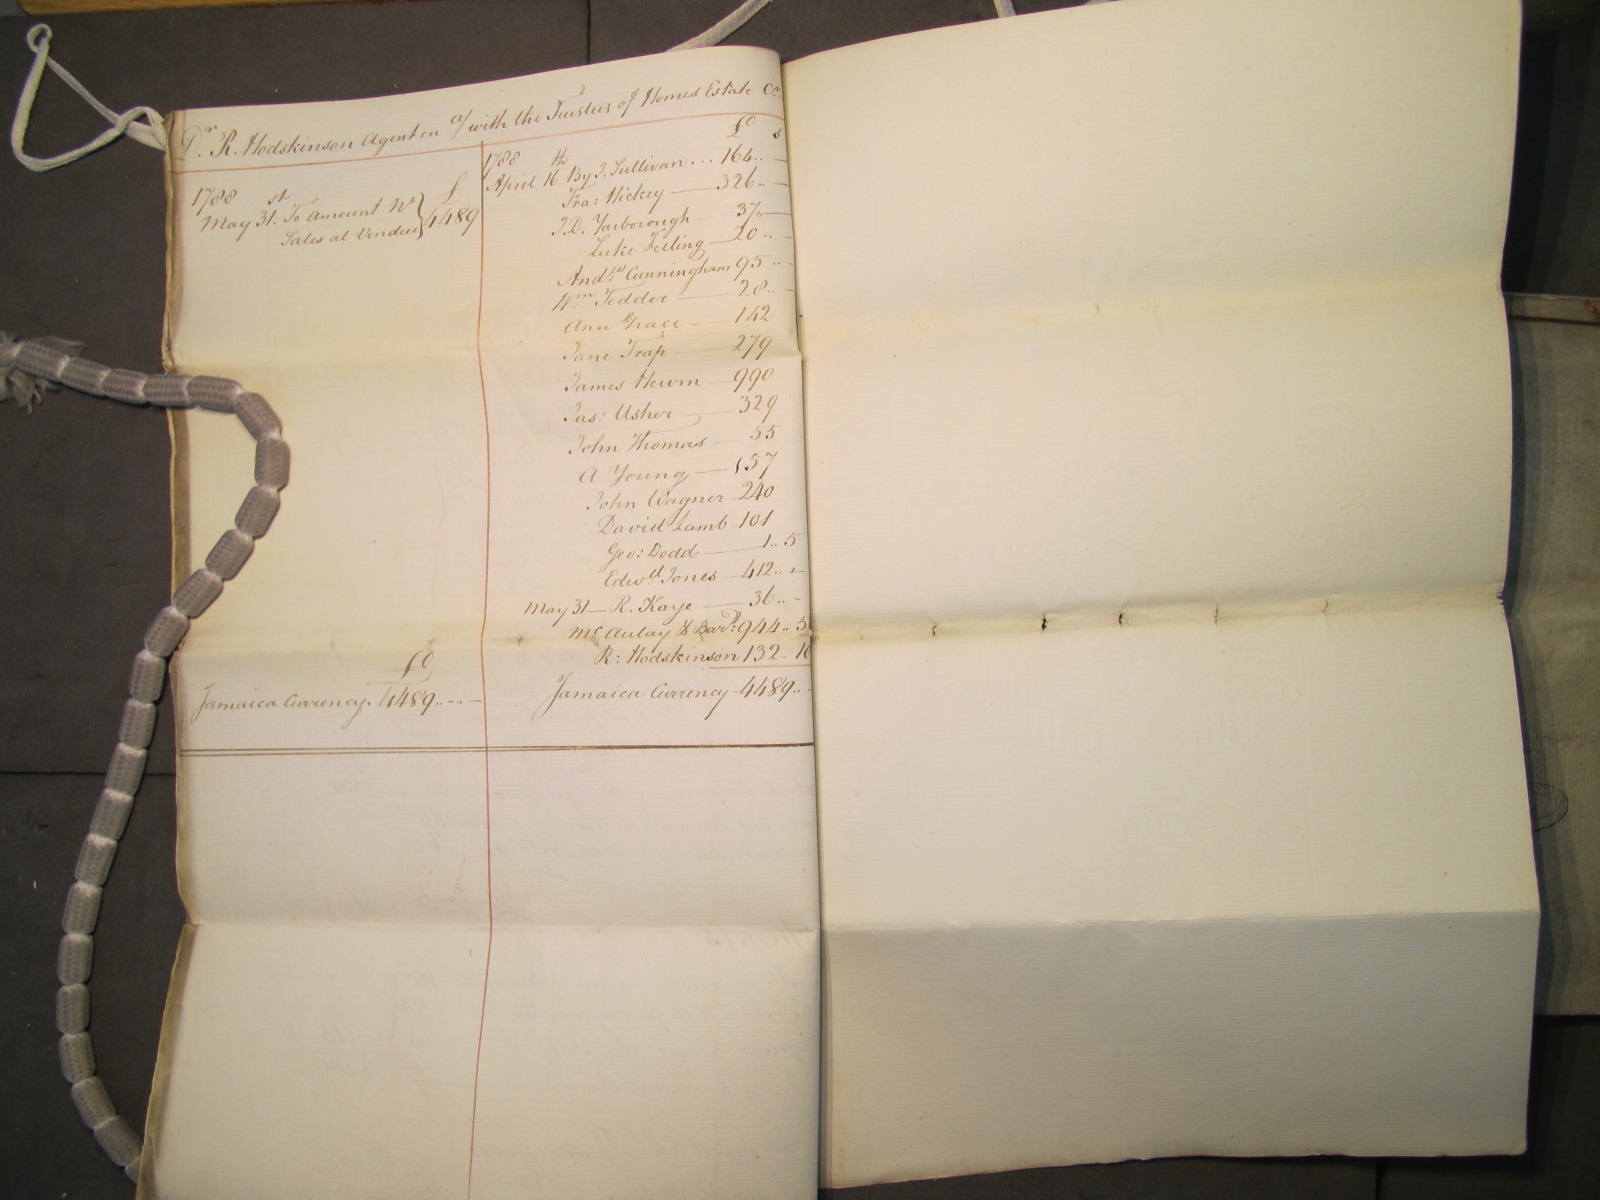 Dr. R. Hodskinson Agent in a/ with the Trustees of Homes Estate Cr.
1788 £
May 31.st To Amount Nt } 4489
Sales at Vendue
£d
Jamaica Currency. 4489..-..-
£d s
1788
April 16th By J. Sullivan... 164..-
Fra: Hickey — 326..-
J.D. Yarborough — 37..-
Luke Feeling — 20..-
Andw. Cunningham 95..-
Wm. Tedder — 28..-
Ann Grace — 142
Jane Trap — 279
James Hewm — 990
Jas: Usher — 329
John Thomas — 55
A Young — 157
John Wagner — 240
David Lamb — 101
Geo: Dodd — 1..5
Edwd. Jones — 412..-
May 31 — R. Kaye — 36..-
McAulay & Bard: 944..5
R: Hodskinson 132..10
Jamaica Currency — 4489..-